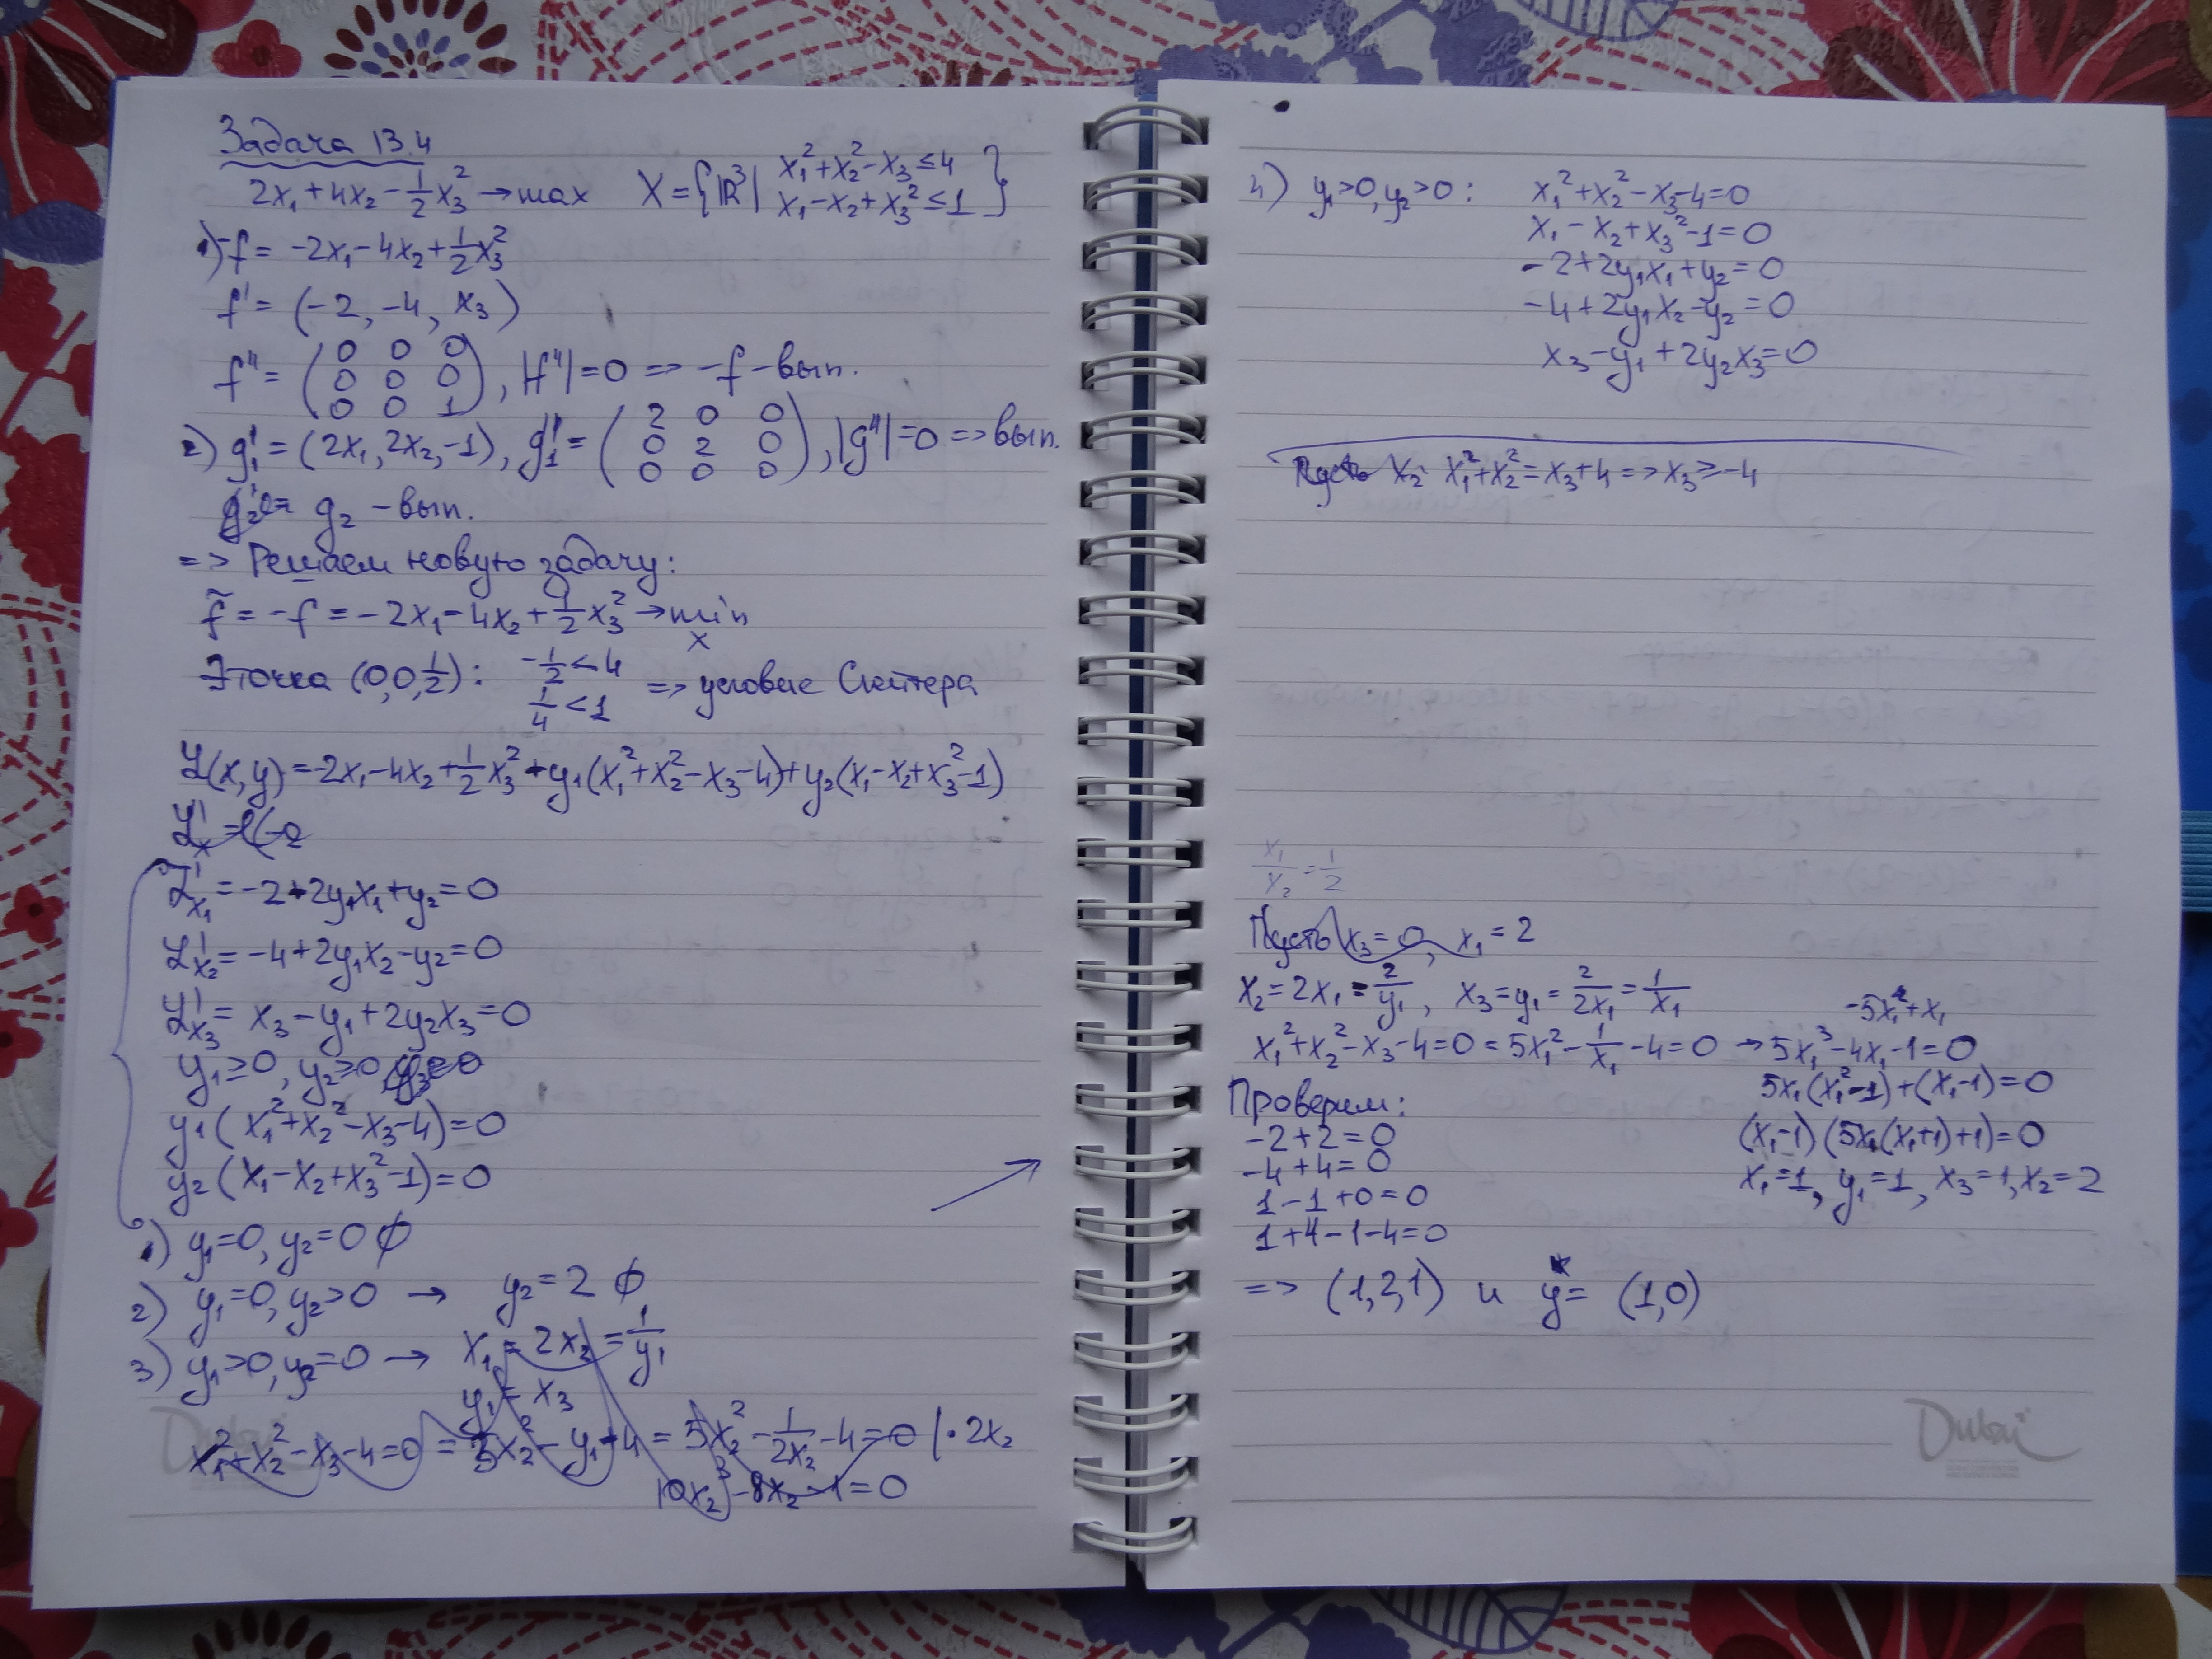 Задача 13.4
2x₁+4x₂-½x₃²→max X={ℝ³| x₁²+x₂²-x₃≤4
x₁-x₂+x₃²≤1}
1) -f= -2x₁-4x₂+½x₃²
f'= (-2, -4, x₃)
f''= (0 0 0
0 0 0
0 0 1), |f''|=0 => -f-вып.
2) g₁'=(2x₁,2x₂,-1), g₁''=(2 0 0
0 2 0
0 0 0), |g''|=0 =>вып.
g₂ -вып.
=> Решаем новую задачу:
f̃=-f=-2x₁-4x₂+½x₃²→min
x
∃точка (0,0,½): -½<4
¼<1 => условие Слейтера
ℒ(x,y)=-2x₁-4x₂+½x₃²+y₁(x₁²+x₂²-x₃-4)+y₂(x₁-x₂+x₃²-1)
ℒ'ₓ=(-2
ℒ'ₓ₁=-2+2y₁x₁+y₂=0
ℒ'ₓ₂=-4+2y₁x₂-y₂=0
ℒ'ₓ₃= x₃-y₁+2y₂x₃=0
y₁≥0, y₂≥0
y₁(x₁²+x₂²-x₃-4)=0
y₂(x₁-x₂+x₃²-1)=0
1) y₁=0, y₂=0 ∅
2) y₁=0, y₂>0 → y₂=2 ∅
3) y₁>0, y₂=0 → x₁=2x₂=1/y₁
y₁=x₃
x₁²+x₂²-x₃-4=0 = 5x₂²-y₁-4 = 5x₂²-1/2x₂-4=0 |·2x₂
10x₂³-8x₂-1=0
4) y₁>0, y₂>0: x₁²+x₂²-x₃-4=0
x₁-x₂+x₃²-1=0
-2+2y₁x₁+y₂=0
-4+2y₁x₂-y₂=0
x₃-y₁+2y₂x₃=0
Пусть x₂: x₁²+x₂²=x₃+4=>x₃≥-4
x₁/x₂=1/2
Пусть x₃=0, x₁=2
x₂=2x₁=2/y₁, x₃=y₁=2/2x₁=1/x₁
-5x₁²+x₁
x₁²+x₂²-x₃-4=0=5x₁²-1/x₁-4=0 →5x₁³-4x₁-1=0
5x₁(x₁²-1)+(x₁-1)=0
Проверим:
(x₁-1)(5x₁(x₁+1)+1)=0
-2+2=0
-4+4=0
x₁=1, y₁=1, x₃=1, x₂=2
1-1+0=0
1+4-1-4=0
=> (1,2,1) и y*= (1,0)
Dubai
Dubai